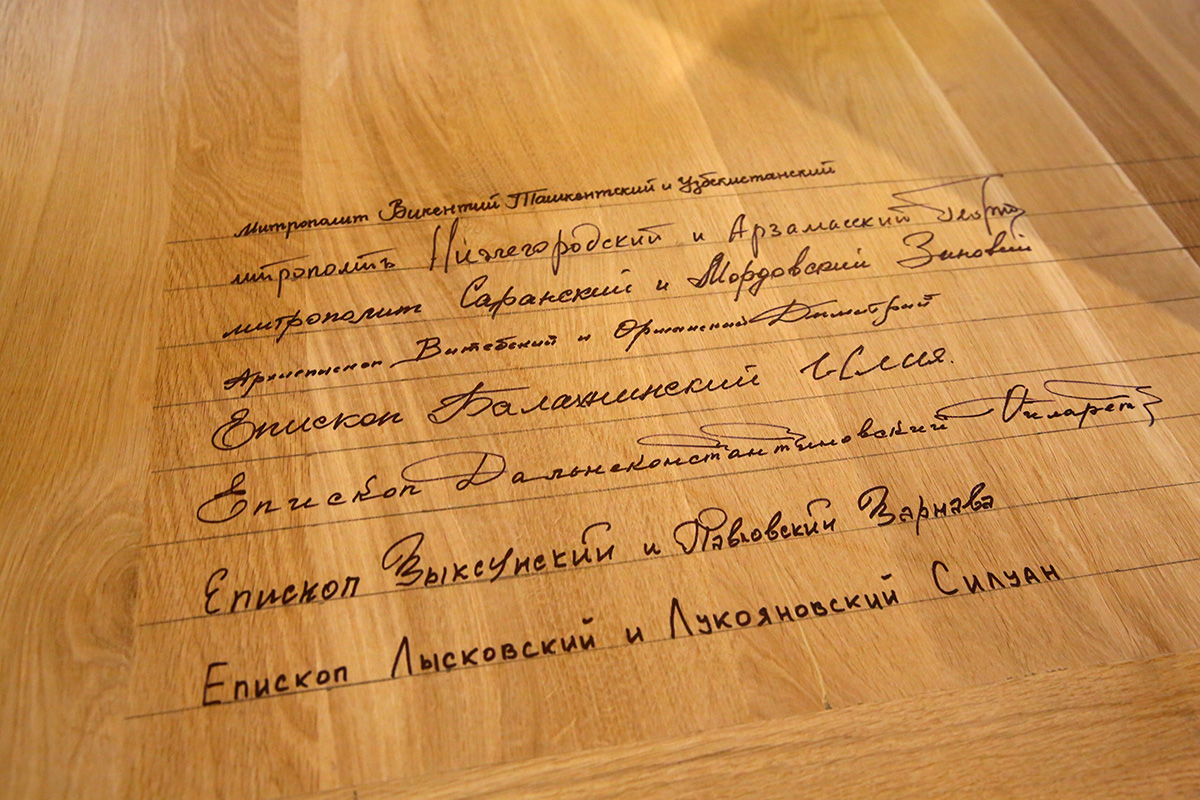 митрополит Викентий Ташкентский и Узбекистанский
митрополитъ Нижегородский и Арзамасский Георгий
митрополит Саранский и Мордовский Зиновий
Архиепископ Витебский и Оршанский Димитрий
Епископ Балахнинский Илия.
Епископ Дальнеконстантиновский Филарет
Епископ Выксунский и Павловский Варнава
Епископ Лысковский и Лукояновский Силуан